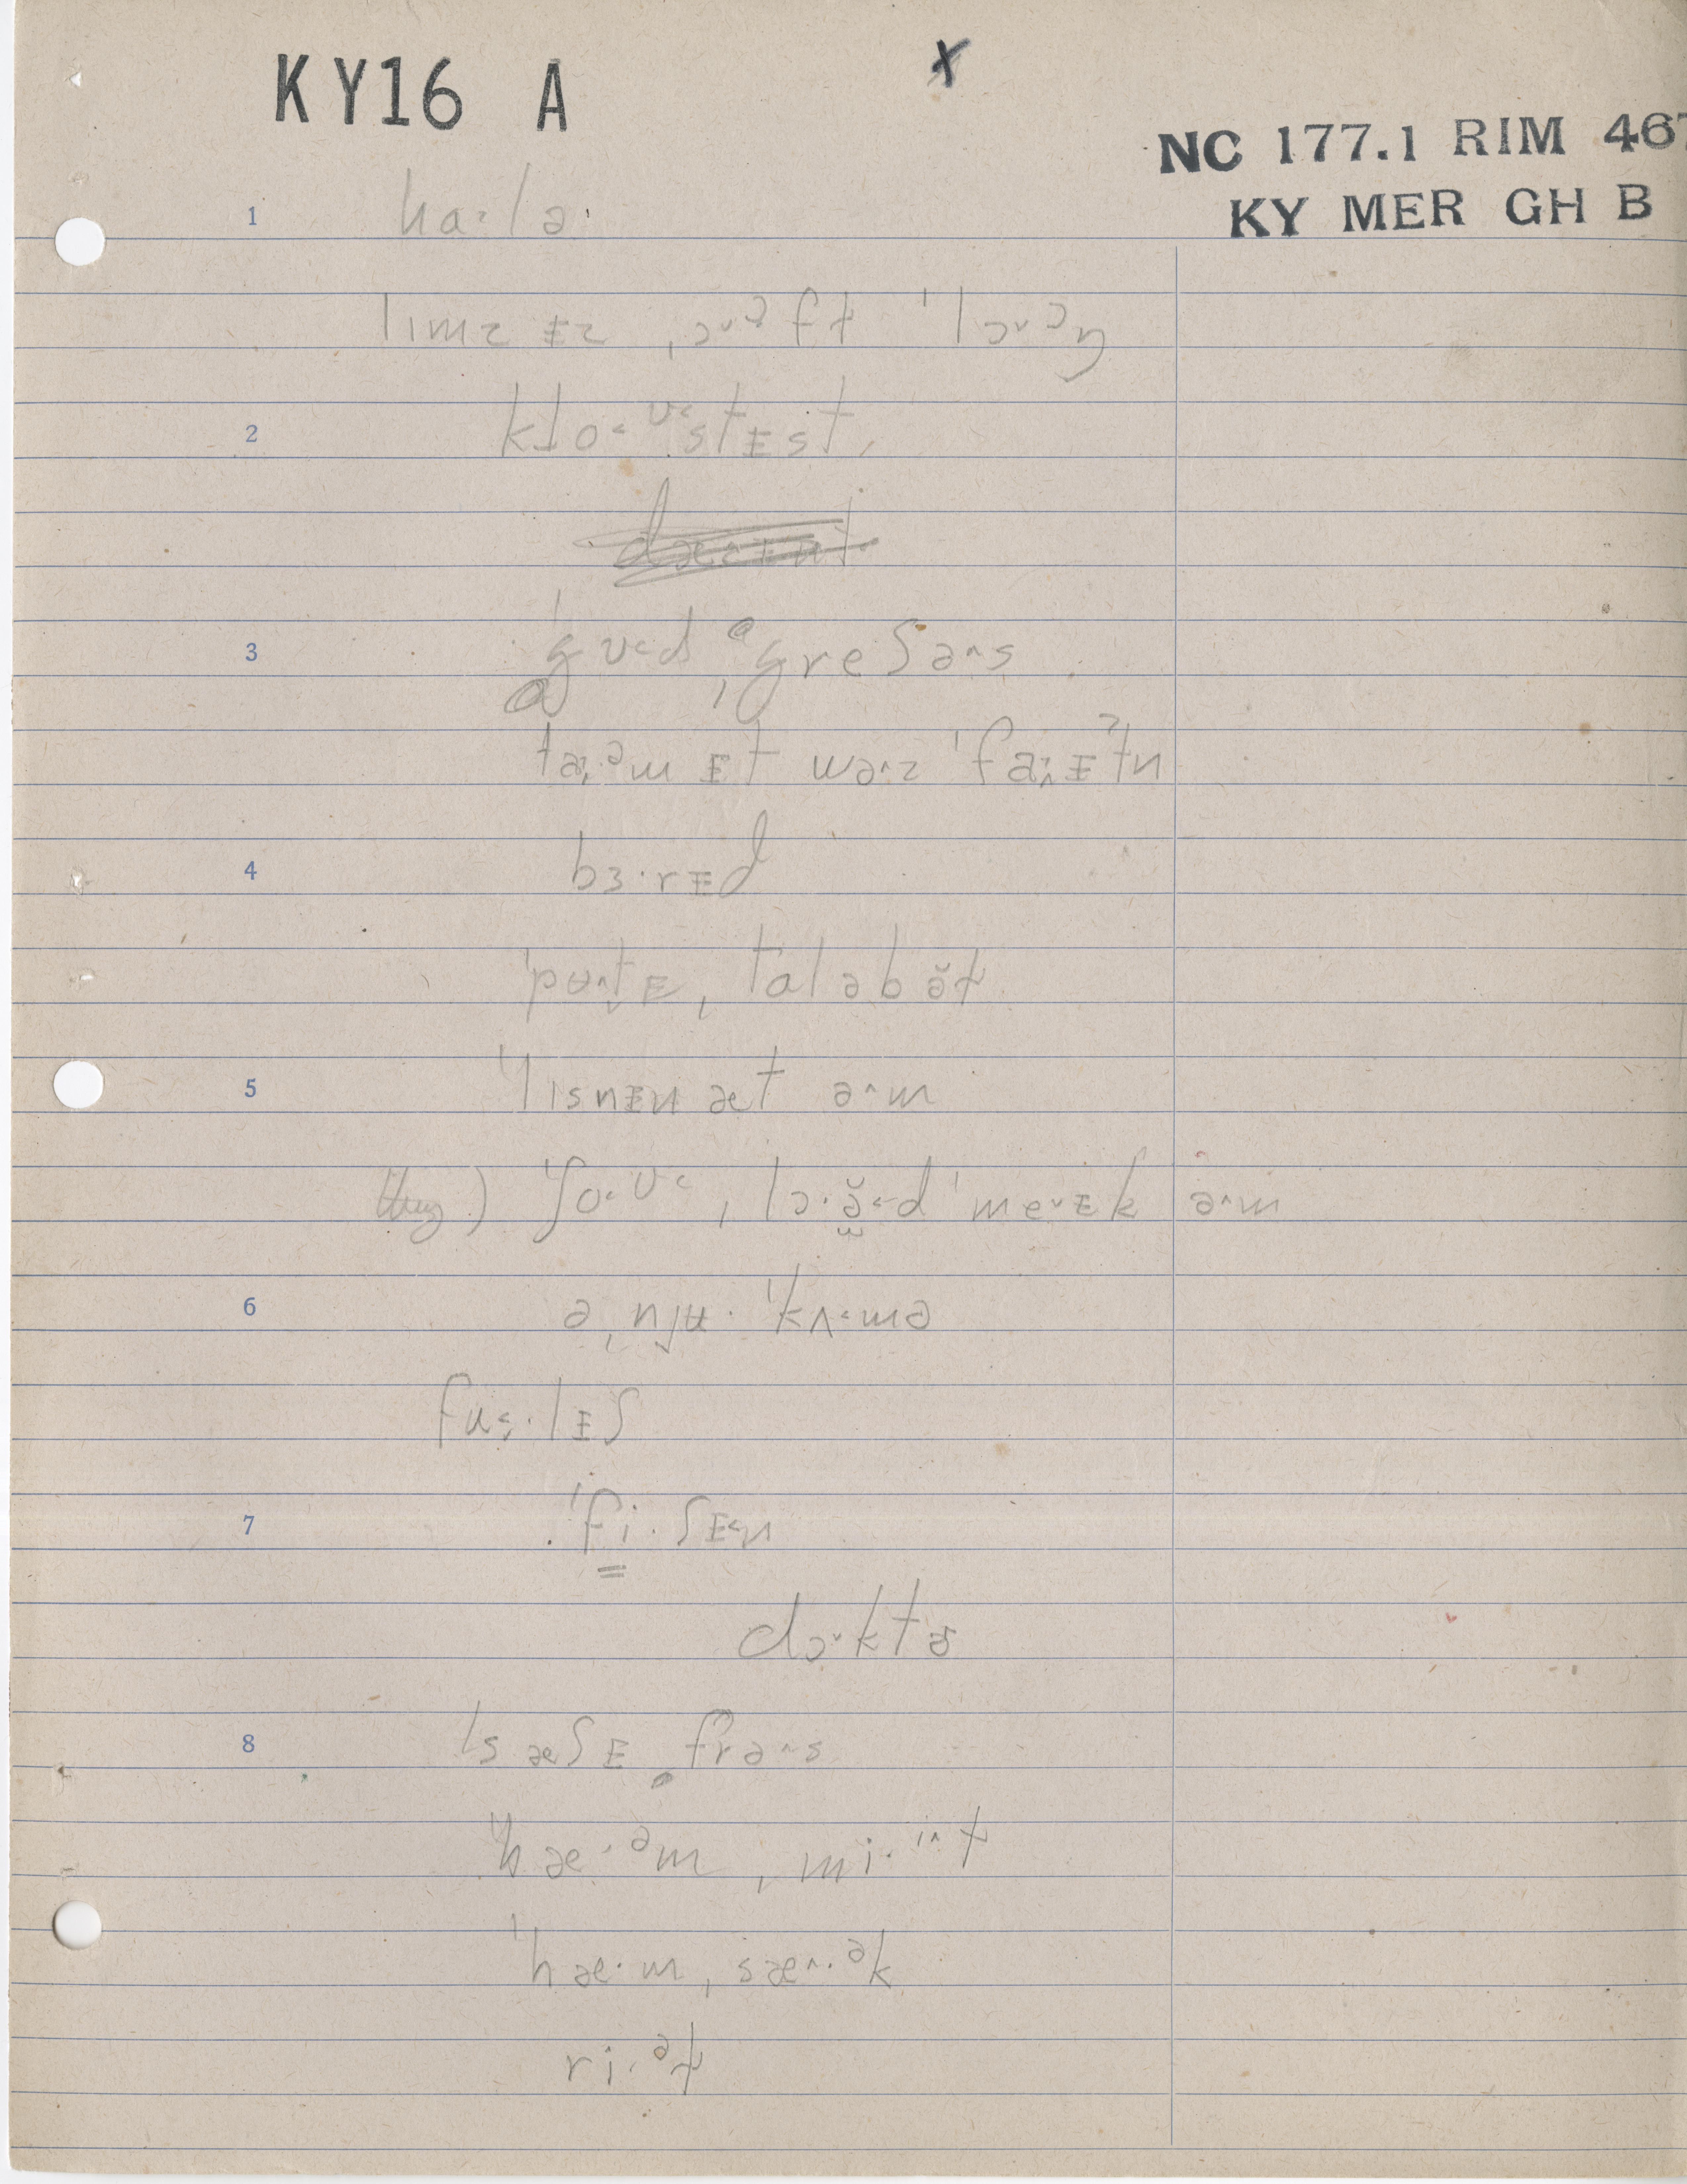 KY16 A
x
NC 177.1 RIM 467
KY MER GH B
1 ha·lə
lɪmz ɪz ˌɔˇɔ̯ft ˈlɔˇɔŋ
2 klo˂ʊ˂stɪst
3 ˈgʊ˂d ˌgreʃə^s
ta·əm ɪt wə^z ˈfa·^ɪʔtn
4 bɜ·rɪd
ˈpʊ^tɪ, taləbət
5 ˈlɪsnɪn æt ə^m
) ˈʃo˂ʊ˂ ˌlɔ·ə˂d ˈmeˇɪk ə^m
6 ə ˌnjʉ· ˈkʌ˂mə
fu˂·lɪʃ
7 ˈfi·ʃɪ˂n
dɔˇktɚ
8 ˈsæʃɪfrə^s
ˈhæ·əm ˌmi·i^t
ˈhæ·m ˌsæ^·ək
ri·ət